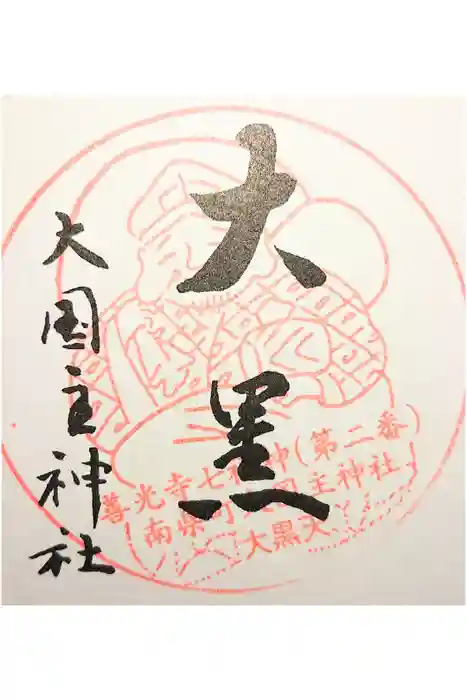 大黒
大国主神社
善光寺七福神(第二番)
南県町大国主神社
大黒天